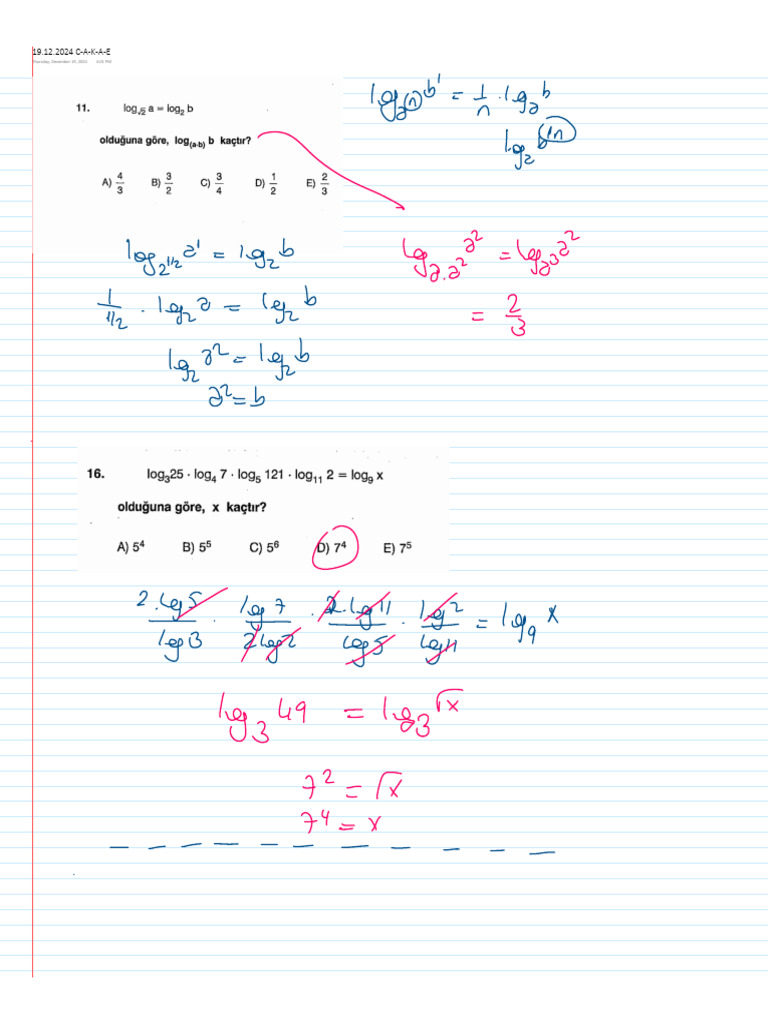 19.12.2024 C-A-K-A-E
Thursday, December 19, 2024
11. log_√2 a = log_2 b
olduğuna göre, log_(a·b) b kaçtır?
A) 4/3 B) 3/2 C) 3/4 D) 1/2 E) 2/3
log_(a^n) b^1 = 1/n · log_a b
log_2 b^(1/n)
log_(2^(1/2)) a^1 = log_2 b
1/(1/2) · log_2 a = log_2 b
log_2 a^2 = log_2 b
a^2 = b
log_(a·a^2) a^2 = log_(a^3) a^2
= 2/3
16. log_3 25 · log_4 7 · log_5 121 · log_11 2 = log_9 x
olduğuna göre, x kaçtır?
A) 5^4 B) 5^5 C) 5^6 D) 7^4 E) 7^5
2·log5/log3 · log7/2log2 · 2·log11/log5 · log2/log11 = log_9 x
log_3 49 = log_3 √x
7^2 = √x
7^4 = x